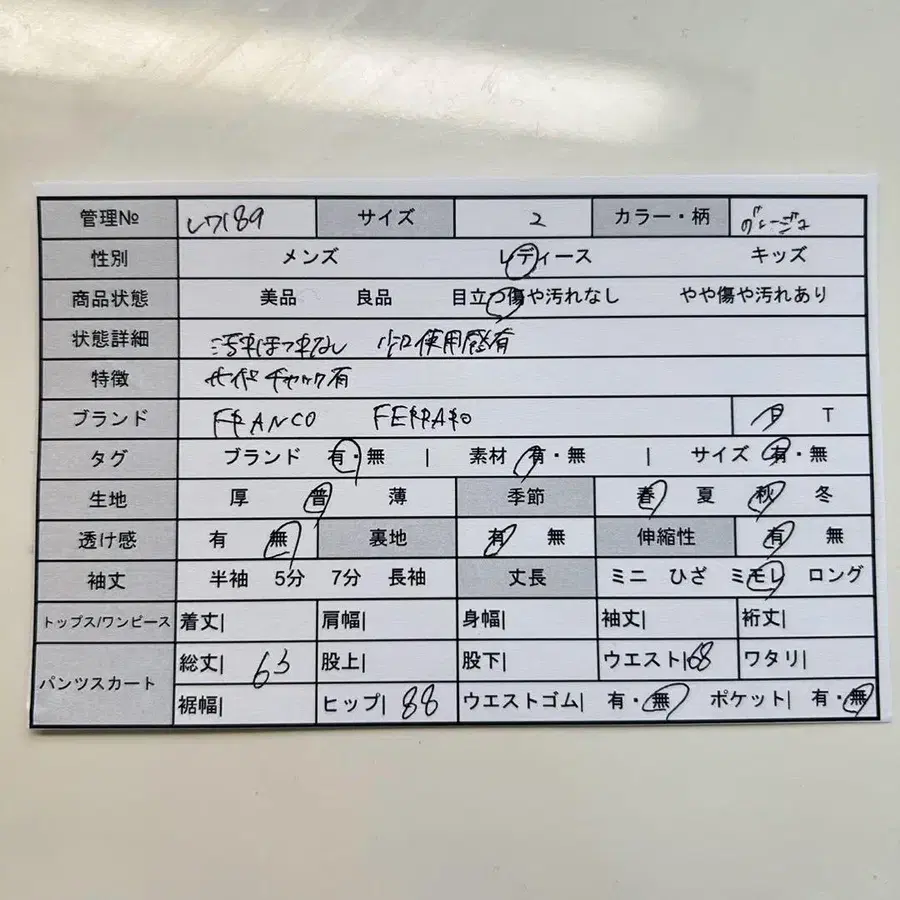 管理№ サイズ 2 カラー・柄 グレージュ
性別 メンズ レディース キッズ
商品状態 美品 良品 目立つ傷や汚れなし やや傷や汚れあり
状態詳細 汚れほつれなし 使用感有
特徴 サイドチャック有
ブランド FRANCO FERRARO 日 T
タグ ブランド 有・無 | 素材 有・無 | サイズ 有・無
生地 厚 普 薄 季節 春 夏 秋 冬
透け感 有 無 裏地 有 無 伸縮性 有 無
袖丈 半袖 5分 7分 長袖 丈長 ミニ ひざ ミモレ ロング
トップス/ワンピース 着丈| 肩幅| 身幅| 袖丈| 裄丈|
パンツスカート 総丈| 63 股上| 股下| ウエスト|68 ワタリ|
裾幅| ヒップ| 88 ウエストゴム| 有・無 ポケット| 有・無